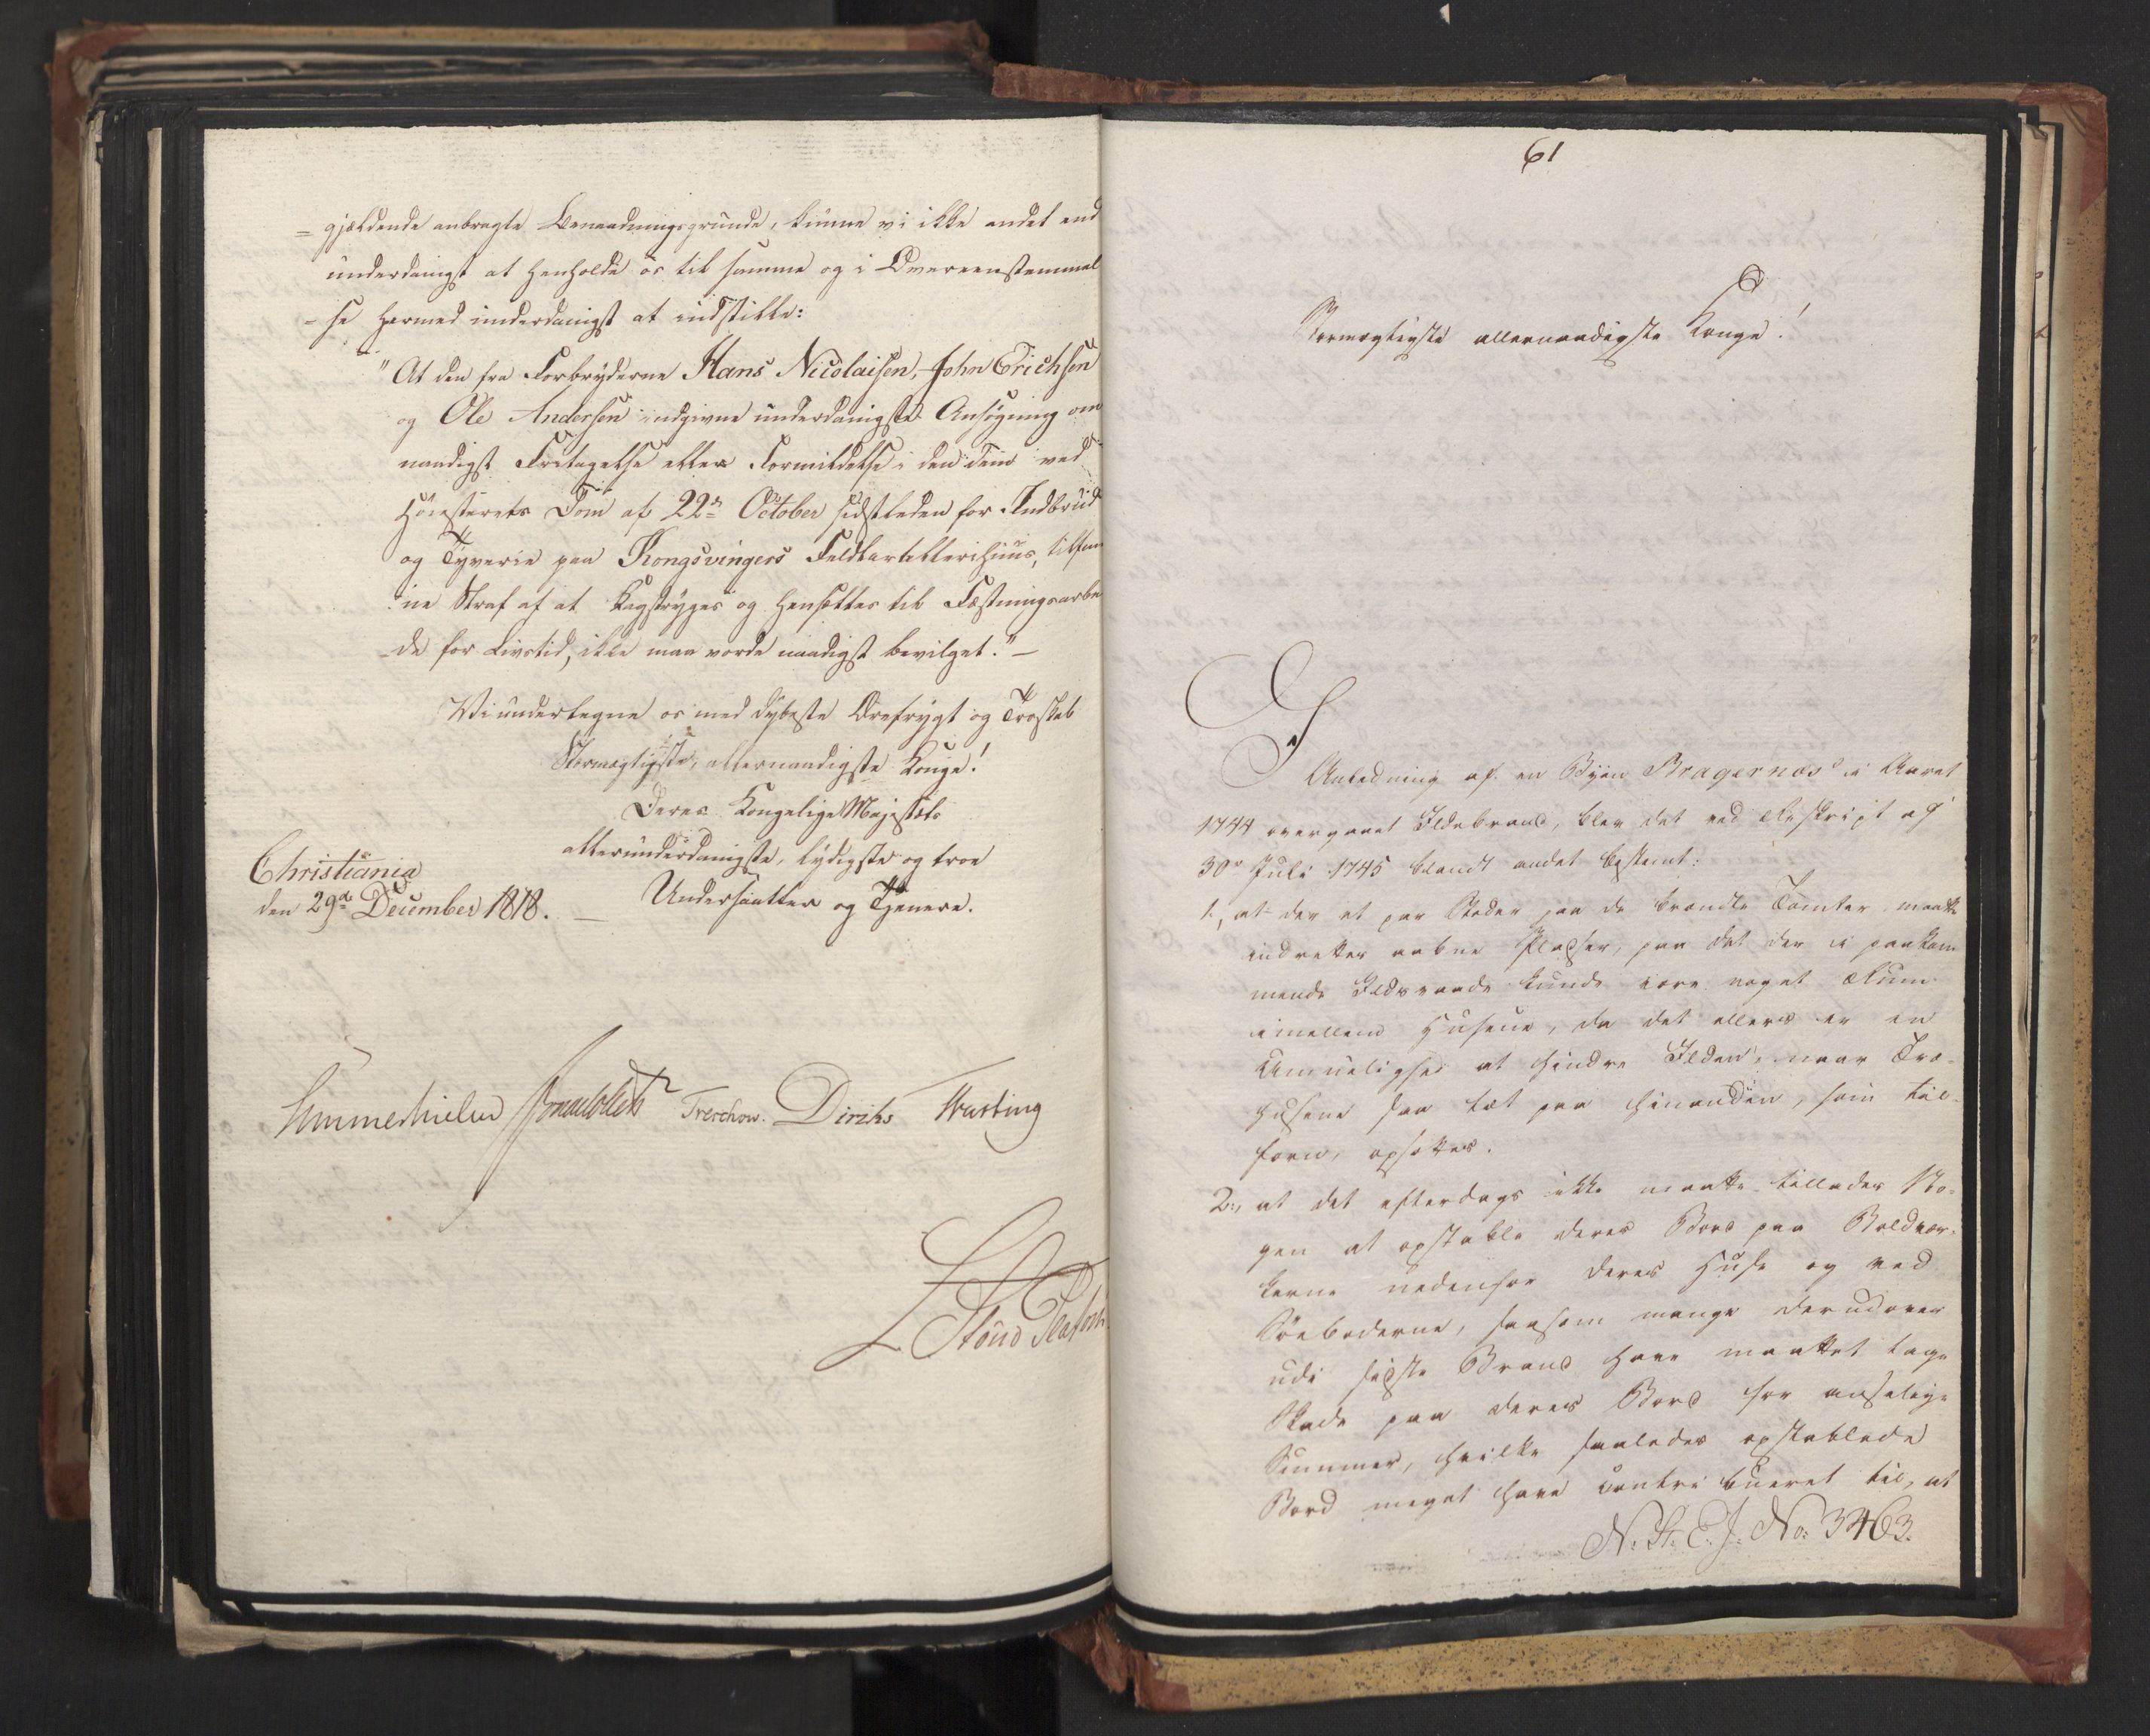 = gjældende anbragte Benaadningsgrunde, kunne vi ikke andet end
underdanigst at henholde os til samme og i Overeensstemmel
= se hermed underdanigst at indstille:
"At den fra Forbryderne Hans Nicolaisen, John Erichsen
og Ole Andersen indgivne underdanigste Ansøgning om
naadigst Fritagelse eller Formildelse i den dem ved
Høiesterets Dom af 22de October sidstleden for Indbrud
og Tyverie paa Kongsvingers Feldtartillerihuus, tilfun
ne Straf af at kagstryges og hensættes til Fæstningsarbei
de for Livstid, ikke maa vorde naadigst bevilget." —
Vi undertegne os med dybeste Ærefrygt og Troskab
Stormægtigste, allernaadigste Konge!
Deres Kongelige Majestæts
allerunderdanigste, lydigste og troe
Christiania
den 29de December 1818. — Undersaatter og Tjenere.
Sommerhielm Treschow. Diriks Hvasting
61
Stormægtigste allernaadigste Konge!
I
Anledning af en Byen Bragernæs i Aaret
1744 overgaaet Ildebrand, blev det ved Reskript af
30te Juli 1745 blandt andet bestemt:
1., at der et par Steder paa de brændte Tomter maatte
indrettes aabne Pladser, paa det der i paakom
mende Ildsvaade kunde være noget Rum
imellem Husene, da det ellers er en
Umuelighed at hindre Ilden, naar Træ-
husene saa tæt paa hinanden, som til-
forn, opsættes.
2., at det efterdags ikke maatte tillades No-
gen at opstable deres Bord paa Boldvær-
kerne nedenfor deres Huse og ved
Søeboderne, saasom mange derudover
udi sidste Brand have maattet tage
Skade paa deres Bord for anselige
Summer, hvilke saaledes opstablede
Bord meget have contribueret til, at
N. St. E. J. No: 3463.